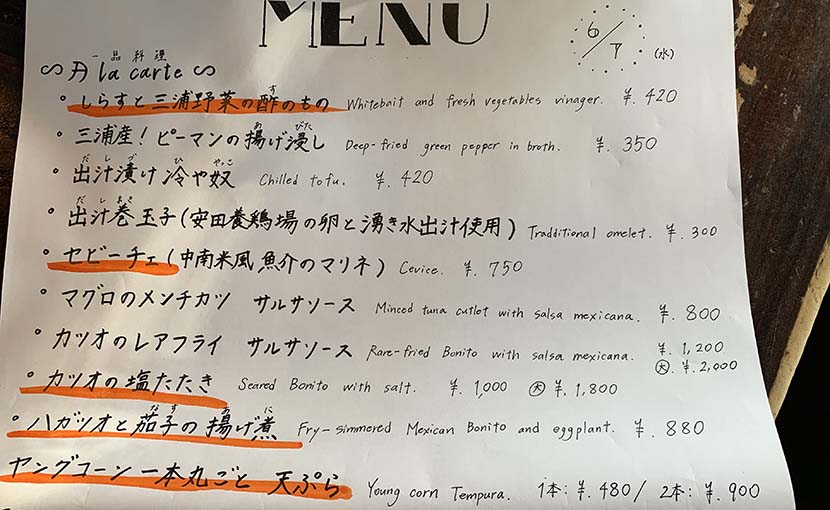 MENU
6/7 (水)
一品料理
A la carte
・しらすと三浦野菜の酢のもの Whitebait and fresh vegetables vinager. ¥.420
・三浦産!ピーマンの揚げ浸し Deep-fried green pepper in broth. ¥.350
・出汁漬け冷や奴 Chilled tofu. ¥.420
・出汁巻玉子(安田養鶏場の卵と湧き水出汁使用) Traditional omelet. ¥.300
・セビーチェ(中南米風魚介のマリネ) Cevice. ¥.750
・マグロのメンチカツ サルサソース Minced tuna cutlet with salsa mexicana. ¥.800
・カツオのレアフライ サルサソース Rare-fried Bonito with salsa mexicana. ¥.1,200
大 ¥.2,000
・カツオの塩たたき Seared Bonito with salt. ¥.1,000 大 ¥.1,800
・ハガツオと茄子の揚げ煮 Fry-simmered Mexican Bonito and eggplant. ¥.880
ヤングコーン一本丸ごと 天ぷら Young corn Tempura. 1本:¥.480/ 2本:¥.900